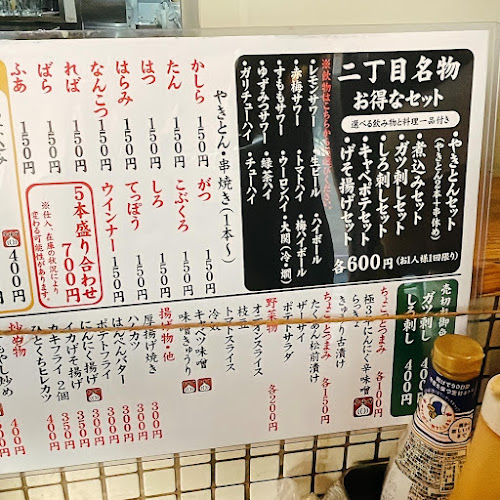 二丁目名物
お得なセット
選べる飲み物と料理一品付き
・やきとんセット
(やきとん2本+串休め)
・煮込みセット
・ガツ刺しセット
・しろ刺しセット
・キャベポテセット
・げそ揚げセット
各600円(お1人様1回限り)
※飲物はこちらからお選びください。
・レモンサワー
・赤梅サワー
・すももサワー
・ゆずみつサワー
・ハイサワー
・ガリチューハイ
・生ビール
・トマトハイ
・ウーロンハイ
・緑茶ハイ
・チューハイ
・ハイボール
・梅ハイボール
・大関(冷・燗)
やきとん・串焼き(1本〜)
かしら 150円
たん 150円
はつ 150円
はらみ 150円
なんこつ 150円
ればー 150円
ばら 150円
ふあ 150円
がつ 150円
こぶくろ 150円
しろ 150円
てっぽう 150円
ウインナー 150円
5本盛り合わせ
700円
※仕入、在庫の状況により
変わる可能性があります。
400円
売切れ御
ガツ刺し 400円
しろ刺し 400円
ちょこっとつまみ 各100円
極3やげんにんにく辛味噌
らっきょ
きゅうり古漬け
ちょこっとつまみ 各150円
たくあん松前漬け
ザーサイ
ポテトサラダ
野菜物 各200円
オニオンスライス
トマトスライス
枝豆
冷奴
キャベツ味噌
味噌きゅうり
揚げ物他
厚揚げ焼き 300円
ハムカツ 300円
はんぺんバター 300円
ポテトフライ 300円
にんにく揚げ 350円
イカげそ揚げ 350円
カキフライ 2個
ひとくちヒレカツ 400円
炒め物